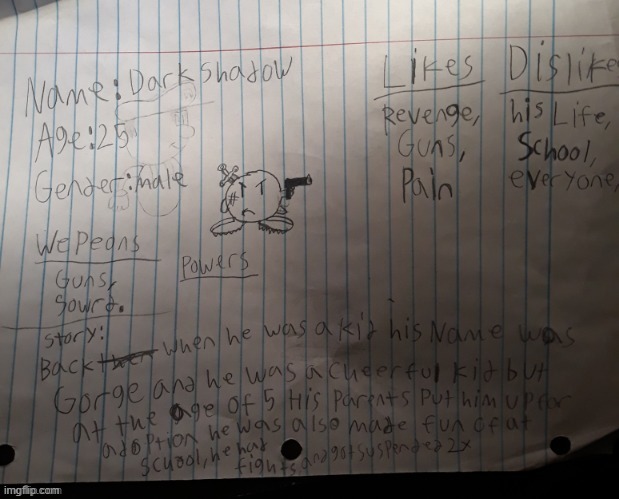 Name: Dark shadow
Age: 25
Gender: male
Likes
Revenge,
Guns,
Pain
Dislike
his Life,
School,
everyone,
Wepeans
Guns,
Sowrd.
Powers
Story:
Back when he was a kid his Name was
Gorge and he was a cheerful kid but
at the age of 5 His Parents Put him up for
adoption he was also made fun of at
school, he had
fights, and got suspended 2x
imgflip.com